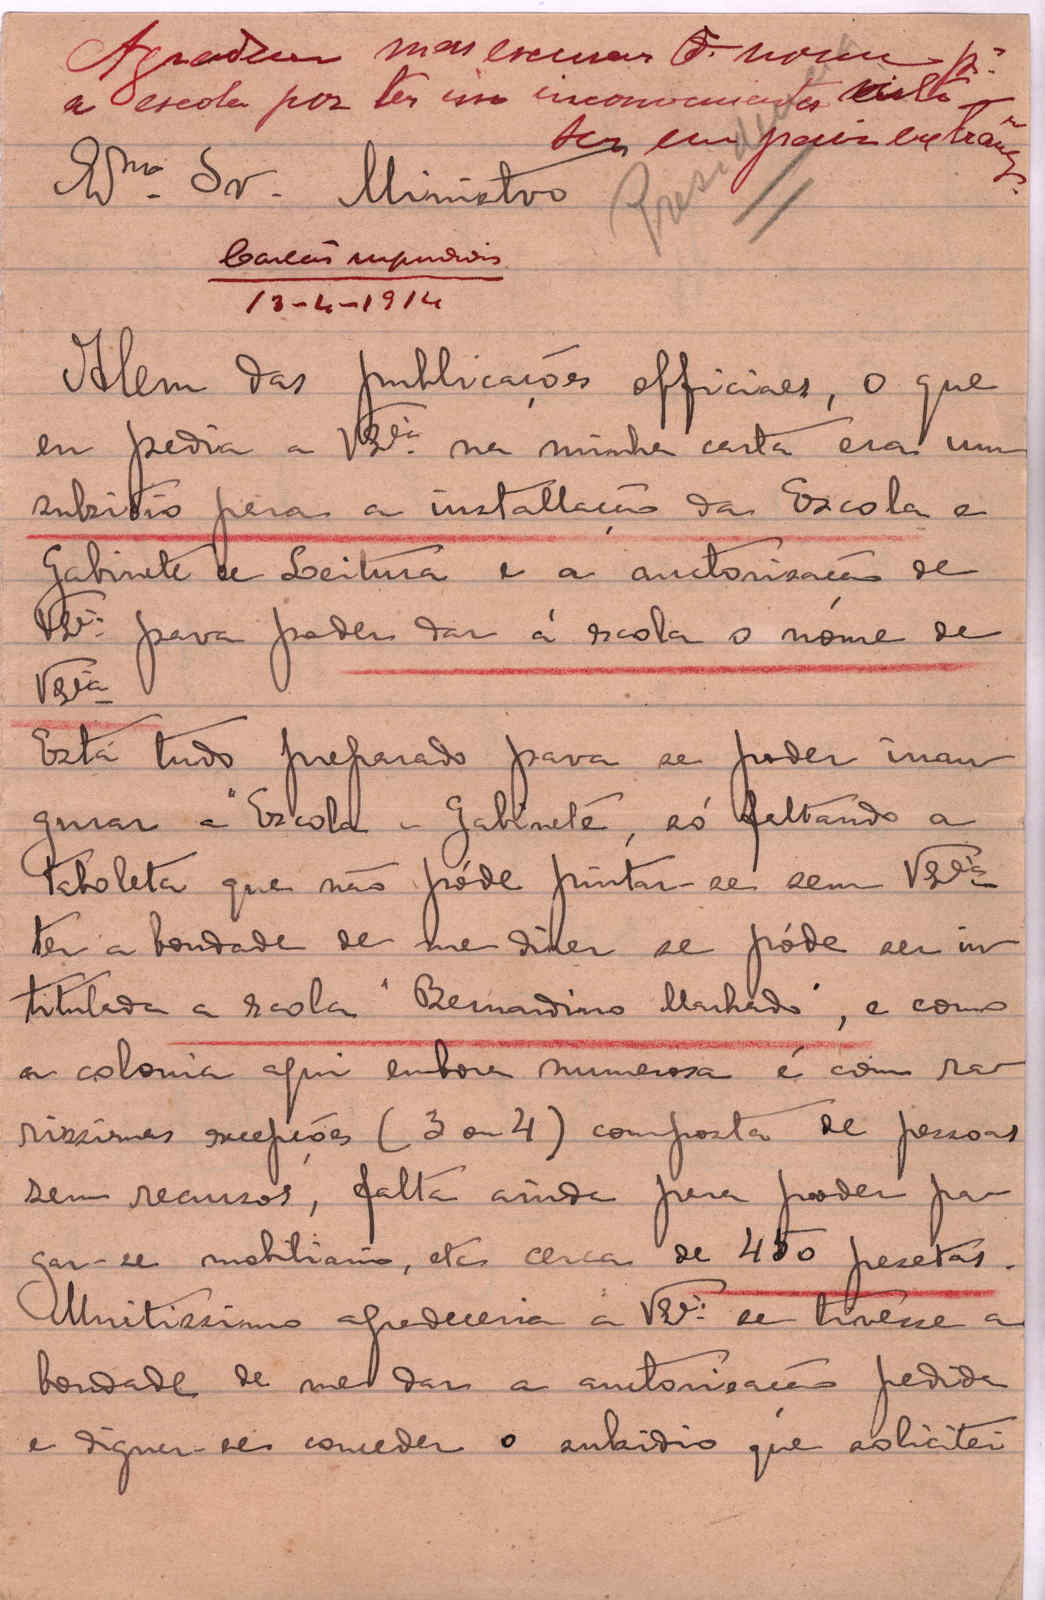 Agradecer mas excusar o nome pª
a escola por ter isso inconvenientes visto
ser em paiz extrangº
Presidencia
Exmo. Sr. Ministro
Cartão
13-4-1914
Alem das publicações officiaes, o que
eu pedia a VExia. na minha carta era um
subsidio para a installação da Escola e
Gabinete de Leitura e a auctorisação de
VExia. para poder dar á escola o nóme de
VExia
Está tudo preparado para se poder inau
gurar a "Escola e Gabinete, só faltando a
taboleta que não póde pintar-se sem VExia
ter a bondade de me dizer se póde ser in
titulada a escola "Bernardino Machado", e como
a colonia aqui embora numerosa é com ra-
rissimas excepções (3 ou 4) composta de pessoas
sem recursos, falta ainda para poder pa-
gar-se mobiliario, etc cerca de 450 pesetas.
Muitissimo agradeceria a VExia. se tivesse a
bondade de me dar a auctorisação pedida
e dignar-se conceder o subsidio que solicitei